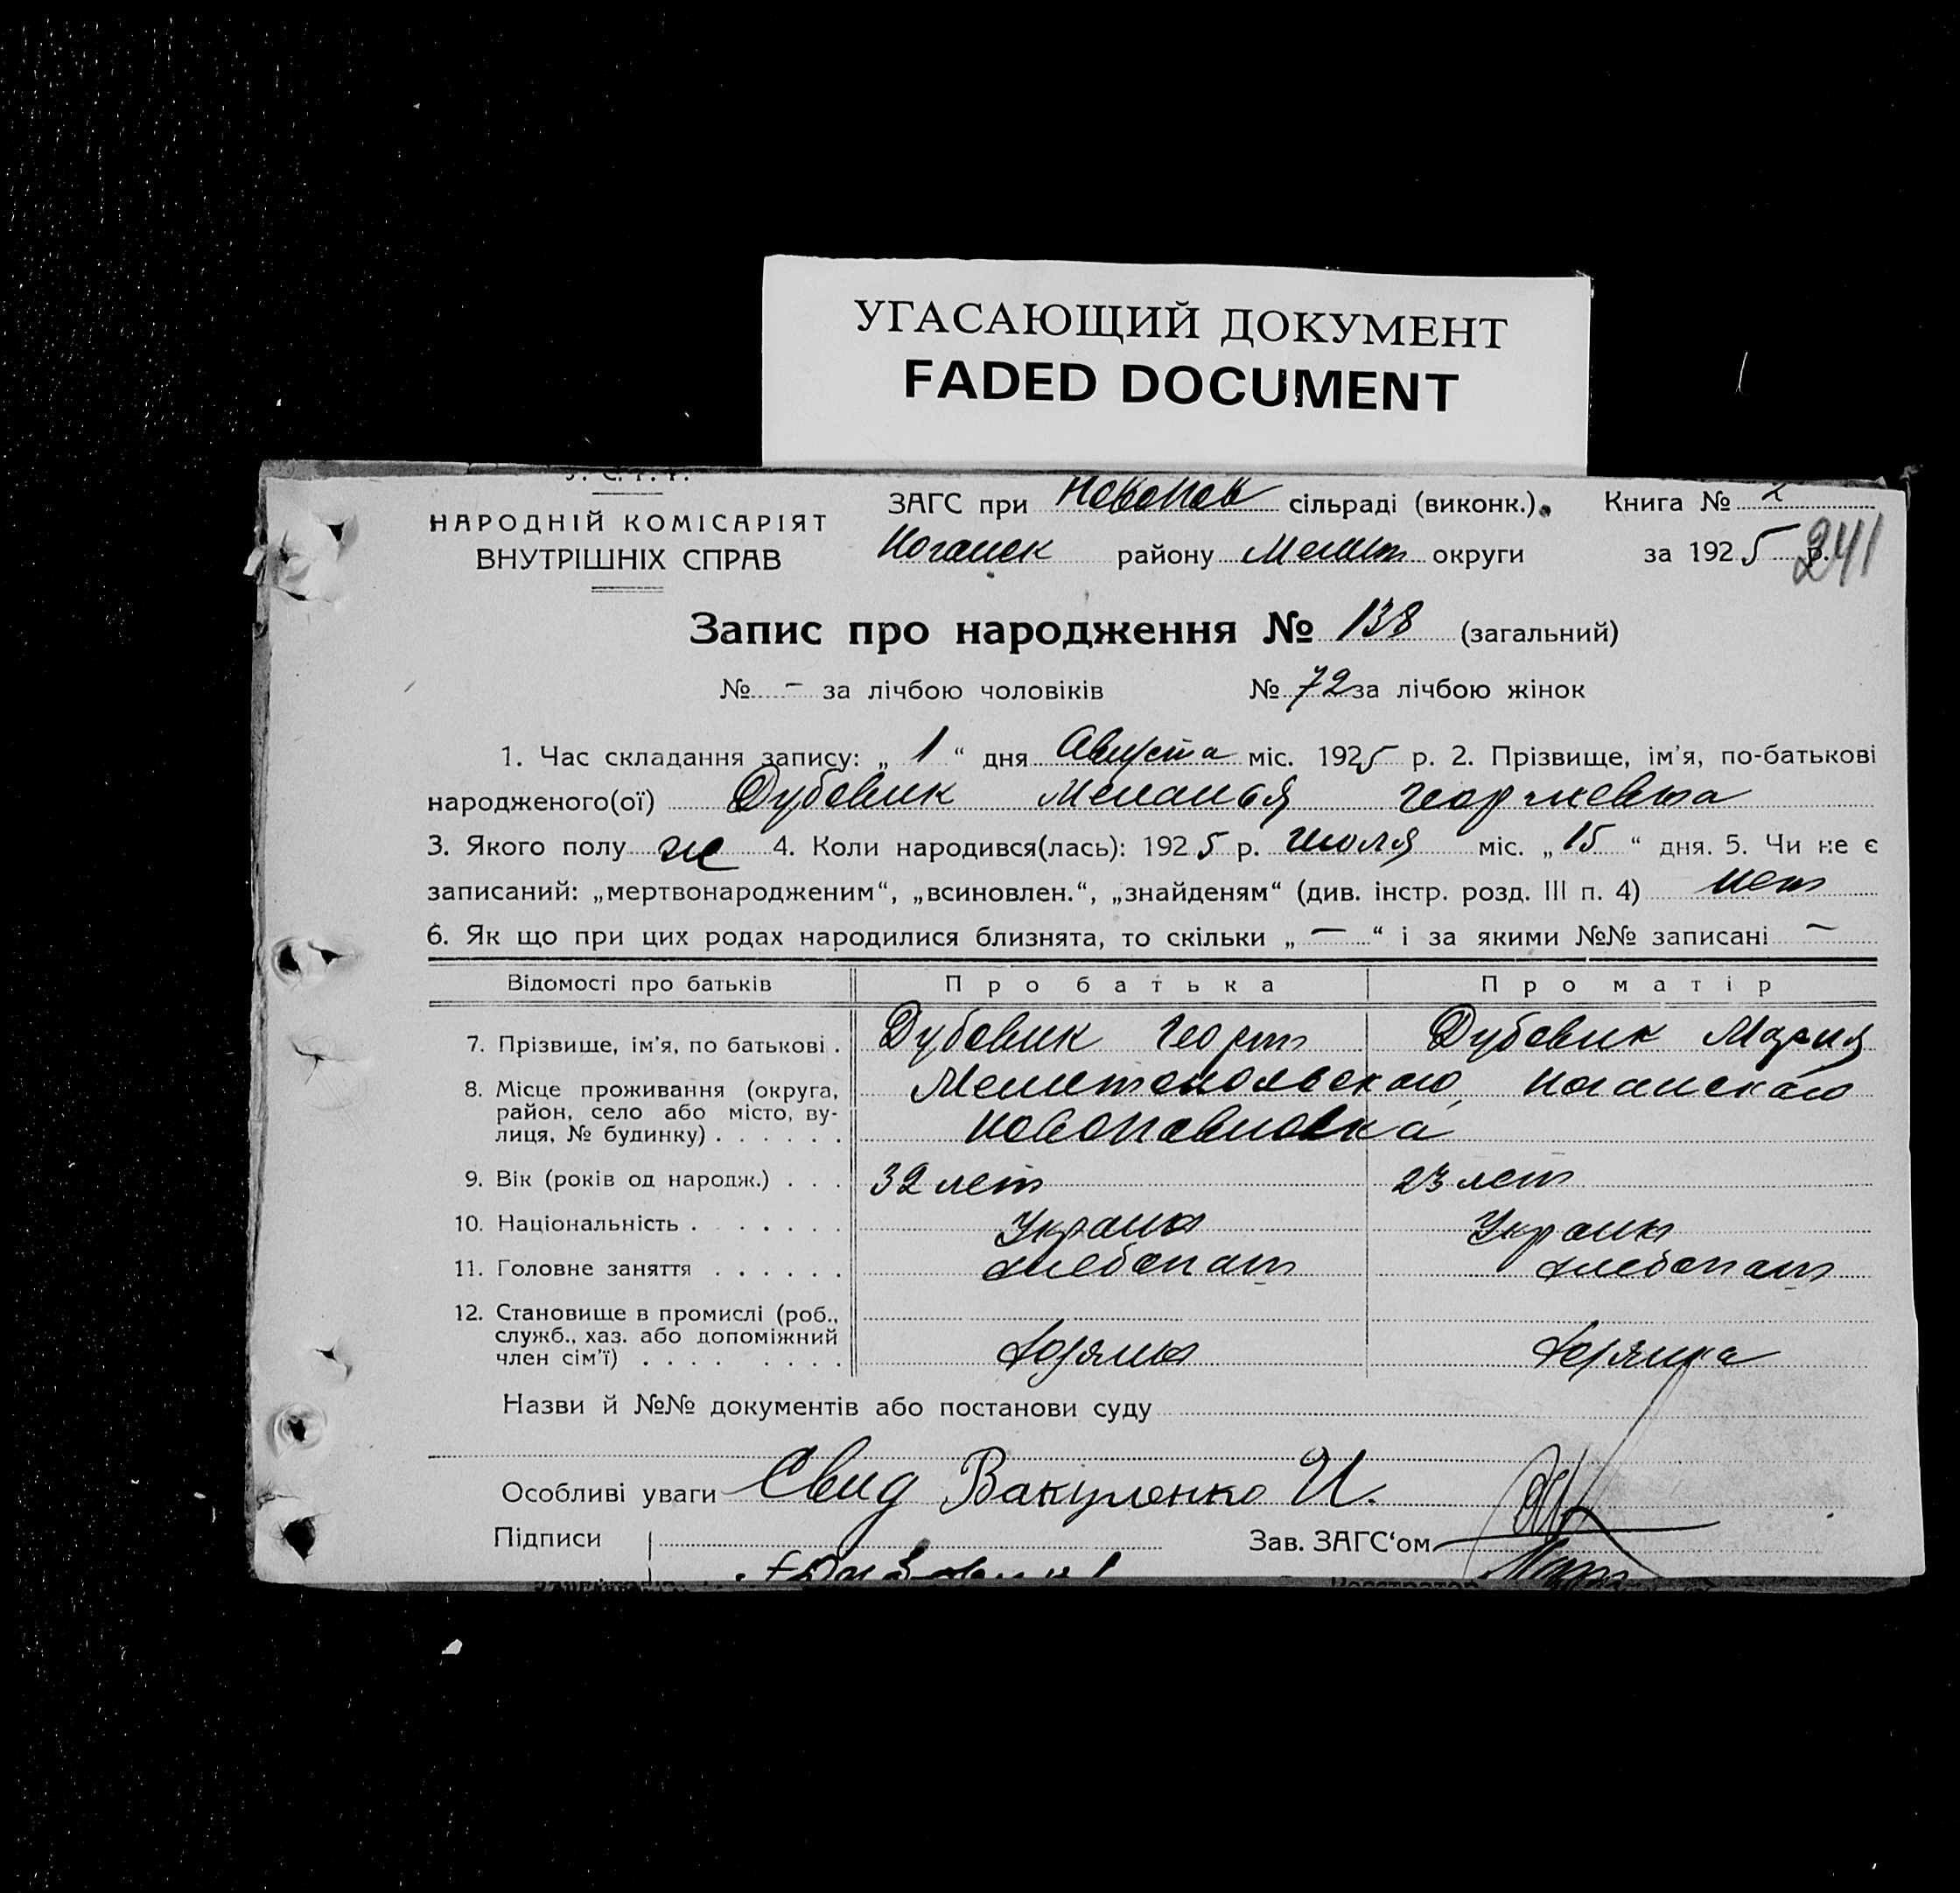 УГАСАЮЩИЙ ДОКУМЕНТ
FADED DOCUMENT
У. С. Р. Р.
НАРОДНІЙ КОМІСАРІЯТ
ВНУТРІШНІХ СПРАВ
ЗАГС при Новопав сільраді (виконк.). Книга №
Ногайск району Мелит округи за 1925 р.
241
Запис про народження № 138 (загальний)
№ - за лічбою чоловіків № 72 за лічбою жінок
1. Час складання запису: „ 1 “ дня Августа міс. 1925 р. 2. Прізвище, ім’я, по-батькові
народженого(ої) Дубовик Меланья Георгиевна
3. Якого полу же 4. Коли народився(лась): 1925 р. Июля міс. „ 15 “ дня. 5. Чи не є
записаний: „мертвонародженим“, „всиновлен.“, „знайденям“ (див. інстр. розд. III п. 4) нет
6. Як що при цих родах народилися близнята, то скільки „ — “ і за якими №№ записані —
Відомості про батьків Про батька Про матір
7. Прізвище, ім’я, по батькові . Дубовик Георг Дубовик Мария
8. Місце проживання (округа, Мелитопольского, Ногайского
район, село або місто, ву-
лиця, № будинку) . . . . . . Новопавловка
9. Вік (років од народж.) . . . 32 лет 23 лет
10. Національність . . . . . . . Украин Украин
11. Головне заняття . . . . . . хлебопаш хлебопаш
12. Становище в промислі (роб.,
служб., хаз. або допоміжний
член сім’ї) . . . . . . . . Хозяин Хозяйка
Назви й №№ документів або постанови суду
Особливі уваги Свид Вакуленко И.
Підписи Зав. ЗАГС‘ом
Реєстратор